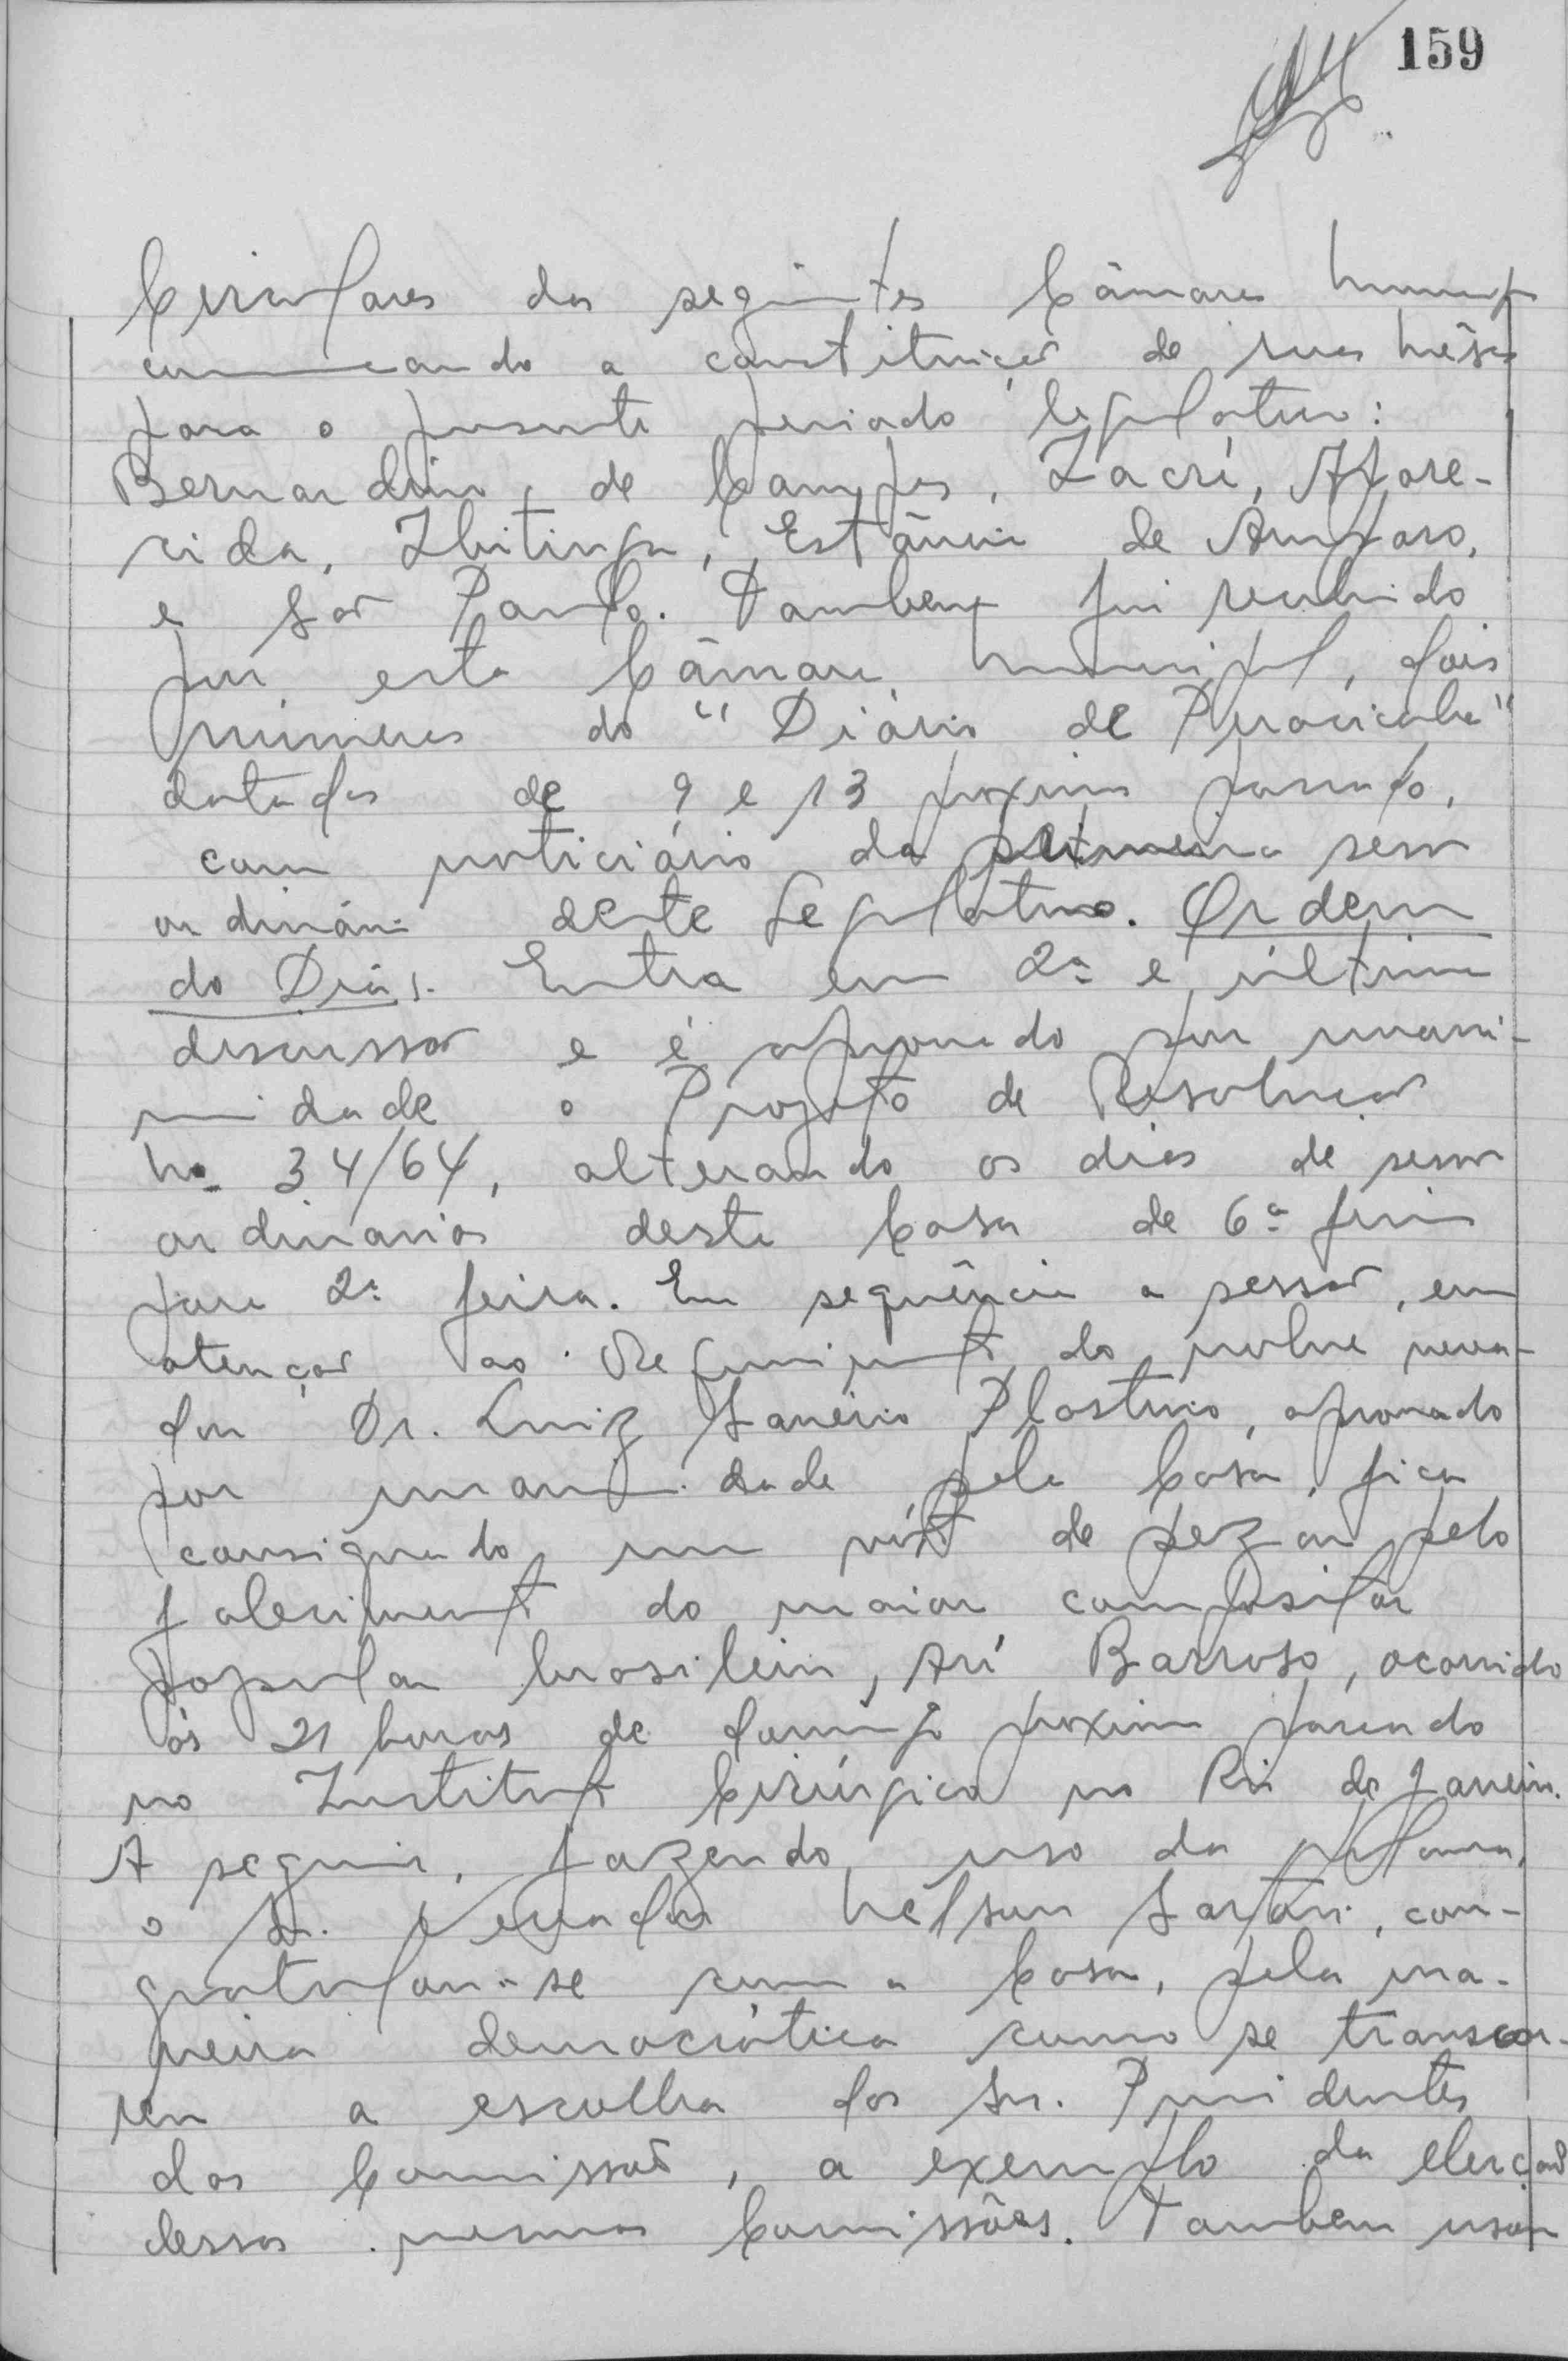 159
Circulares das seguintes Câmaras Municip
comunicando a constituição de suas mêsas
para o presente periodo legislativo:
Bernardino de Campos, Iacrí, Apare-
cida, Ibitinga, Estância de Amparo,
e São Paulo. Tambem foi recebido
por esta Câmara Municipal, dois
números do "Diário de Piracicaba"
datados de 9 e 13 proximo passado,
com noticiário da primeira sessão
ordinária deste Legislativo. Ordem
do Dia: Entra em 2ª e última
discussão e é aprovado por unani-
midade o Projeto de Resolução
nº 34/64, alterando os dias de sessão
ordinarias desta Casa de 6ª feira
para 2ª feira. Em sequência a sessão, em
atenção ao Requerimento do nobre verea-
dor Dr. Luiz Plastino, aprovado
por unanimidade pela Casa, fica
consignado um vóto de pezar pelo
falecimento do maior compositor
popular brasileiro, Arí Barroso, ocorrido
ás 21 horas de domingo proximo passado
no Instituto Cirúrgico no Rio de Janeiro.
A seguir, fazendo uso da palavra,
o Sr. Vereador Nelson Sartori, con-
gratulou-se com a Casa, pela ma-
neira democrática como se transcor-
reu a escolha dos Srs. Presidentes
das Comissões, a exemplo da eleição
dessas mesmas Comissões. Tambem usou